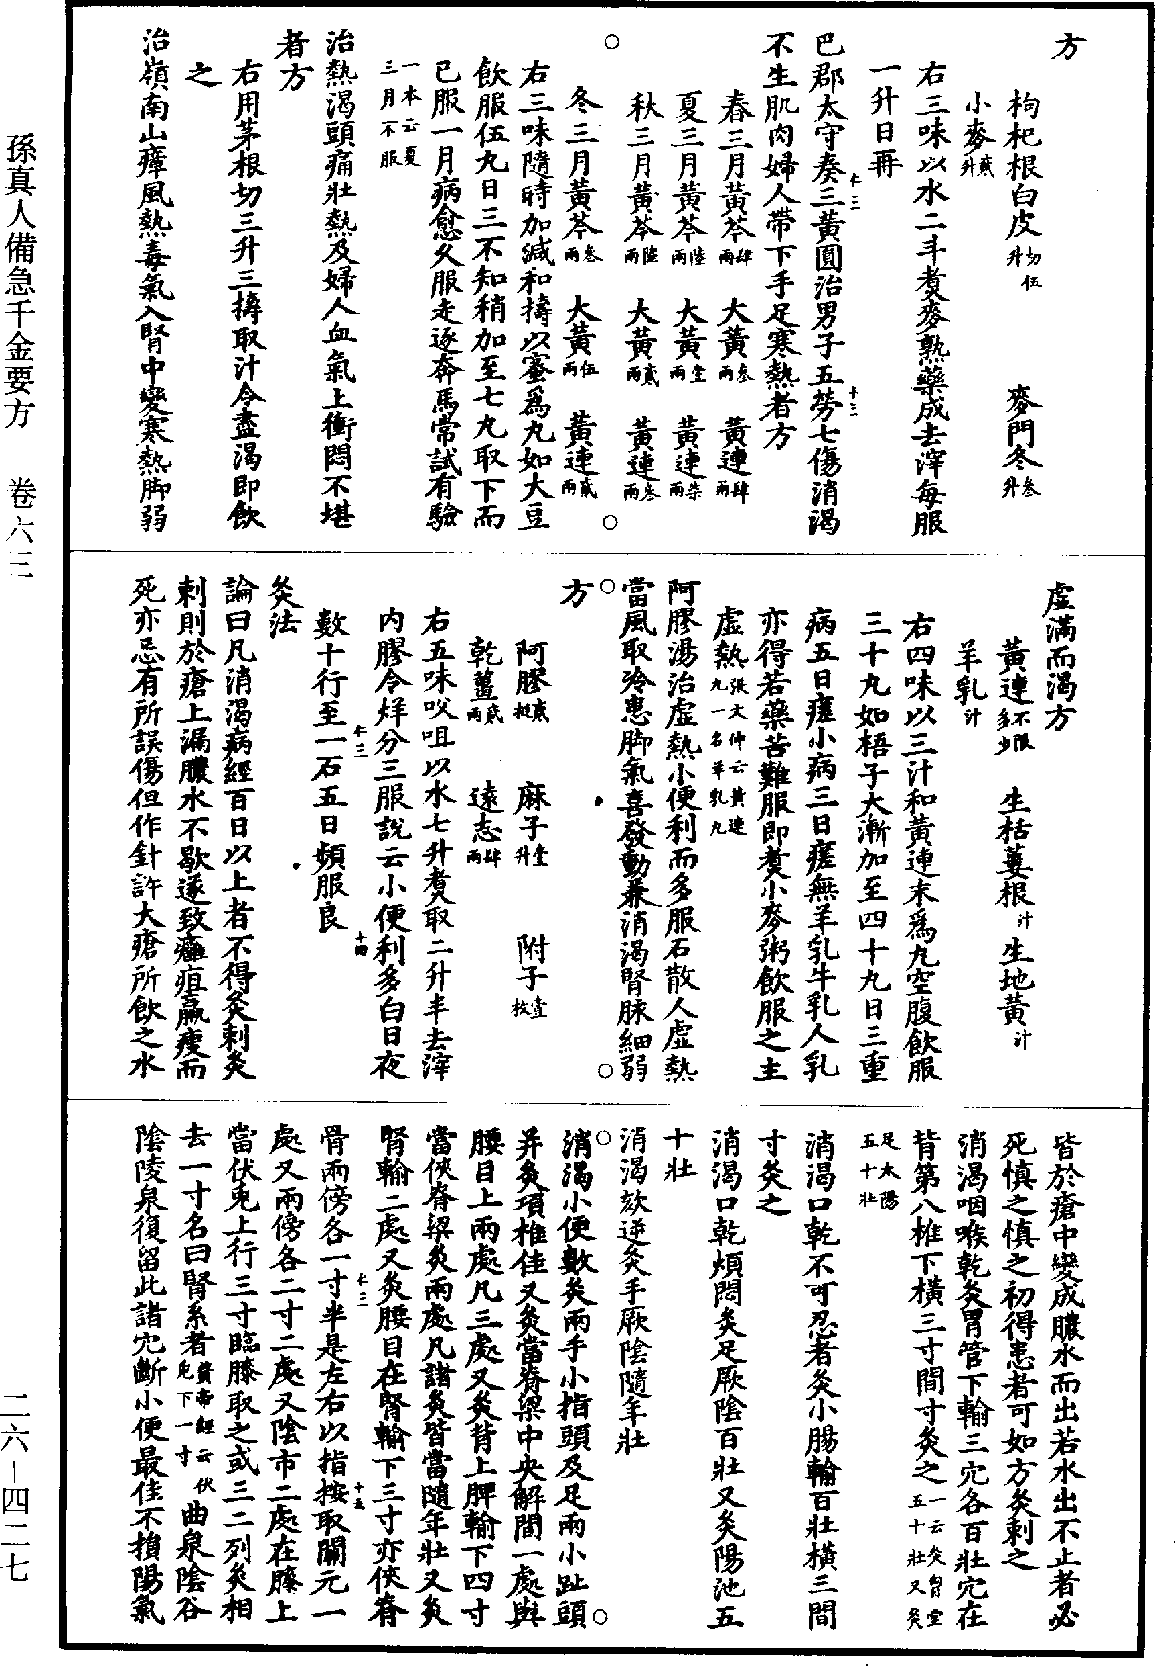 方
枸杞根白皮切伍升 麥門冬叁升
小麥貳升
右三味以水二斗煑麥熟藥成去滓每服
一升日再
巴郡太守奏三黃圓治男子五勞七傷消渴
不生肌肉婦人帶下手足寒熱者方
春三月黃芩肆兩 大黃叁兩 黃連肆兩
夏三月黃芩陸兩 大黃壹兩 黃連柒兩
秋三月黃芩陸兩 大黃貳兩 黃連叁兩
冬三月黃芩叁兩 大黃伍兩 黃連貳兩
右三味隨時加減和擣以蜜爲丸如大豆
飲服伍丸日三不知稍加至七丸取下而
已服一月病愈久服走逐奔馬常試有驗
一本云夏三月不服
治熱渴頭痛壯熱及婦人血氣上衝悶不堪
者方
右用茅根切三升三擣取汁令盡渴即飲
之
治嶺南山瘴風熱毒氣入腎中變寒熱脚弱
虛滿而渴方
黃連不限多少 生栝蔞根汁 生地黃汁
羊乳汁
右四味以三汁和黃連末爲丸空腹飲服
三十丸如梧子大漸加至四十九日三重
病五日瘥小病三日瘥無羊乳牛乳人乳
亦得若藥苦難服即煑小麥粥飲服之主
虛熱張文仲云黃連丸一名羊乳丸
阿膠湯治虛熱小便利而多服石散人虛熱
當風取冷患脚氣喜發動兼消渴腎脉細弱
方
阿膠貳挺 麻子壹升 附子壹枚
乾薑貳兩 遠志肆兩
右五味㕮咀以水七升煑取二升半去滓
內膠令烊分三服說云小便利多白日夜
數十行至一石五日頻服良
灸法
論曰凡消渴病經百日以上者不得灸刺灸
刺則於瘡上漏膿水不歇遂致癰疽羸瘦而
死亦忌有所誤傷但作針許大瘡所飲之水
皆於瘡中變成膿水而出若水出不止者必
死慎之慎之初得患者可如方灸刺之
消渴咽喉乾灸胃管下輸三穴各百壯穴在
背第八椎下橫三寸間寸灸之一云灸胸堂五十壯又灸
足太陽五十壯
消渴口乾不可忍者灸小腸輸百壯橫三間
寸灸之
消渴口乾煩悶灸足厥陰百壯又灸陽池五
十壯
消渴欬逆灸手厥陰隨年壯
消渴小便數灸兩手小指頭及足兩小趾頭
并灸項椎佳又灸當脊梁中央解間一處與
腰目上兩處凡三處又灸背上脾輸下四寸
當俠脊梁灸兩處凡諸灸皆當隨年壯又灸
腎輸二處又灸腰目在腎輸下三寸亦俠脊
骨兩傍各一寸半是左右以指按取關元一
處又兩傍各二寸二處又陰市二處在膝上
當伏兎上行三寸臨膝取之或三二列灸相
去一寸名曰腎系者黃帝經云伏兎下一寸曲泉陰谷
陰陵泉復留此諸穴斷小便最佳不損陽氣
孫真人備急千金要方 卷六三
二六－四二七